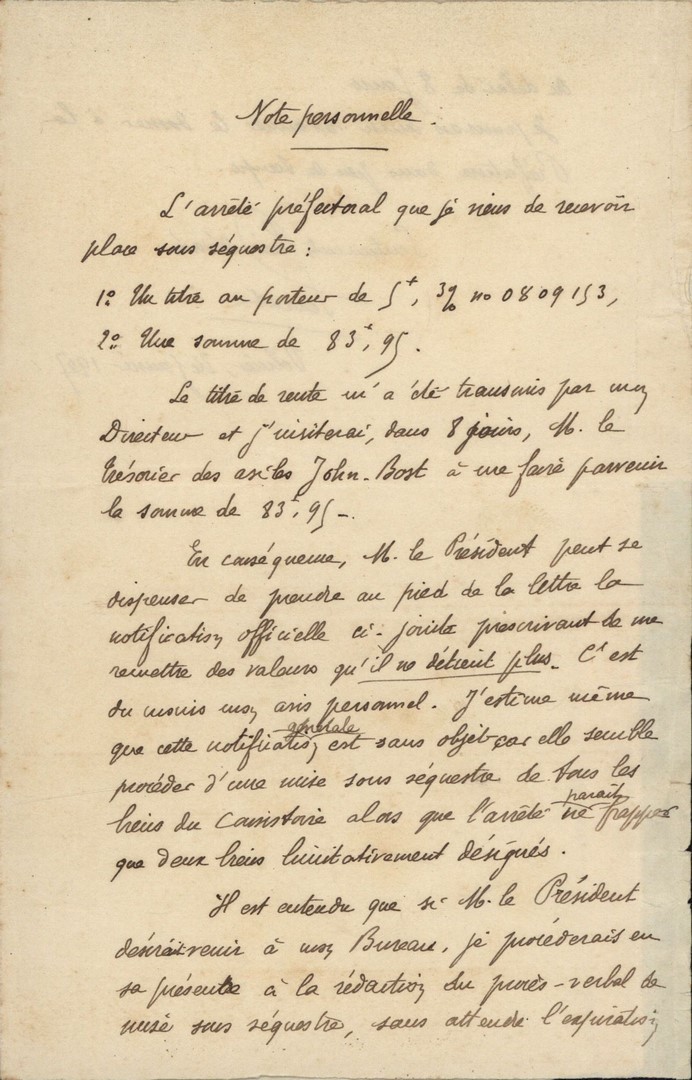 Note personnelle.
L'arrêté préfectoral que je viens de recevoir
place sous séquestre :
1º Un titre au porteur de 5f, 3% nº 0809153,
2º Une somme de 83f,95.
Le titre de rente m'a été transmis par mon
Directeur et j'inviterai, dans 8 jours, M. le
Trésorier des asiles John-Bost à me faire parvenir
la somme de 83f,95 -.
En conséquence, M. le Président peut se
dispenser de prendre au pied de la lettre la
notification officielle ci-jointe prescrivant de me
remettre des valeurs qu'il ne détient plus. C'est
du moins mon avis personnel. J'estime même
que cette notification générale est sans objet car elle semble
procéder d'une mise sous séquestre de tous les
biens du Consistoire alors que l'arrêté ne paraît frapper
que deux biens limitativement désignés.
Il est entendu que si M. le Président
désirait venir à mon Bureau, je procéderais en
sa présence à la rédaction du procès-verbal de
mise sous séquestre, sans attendre l'expiration